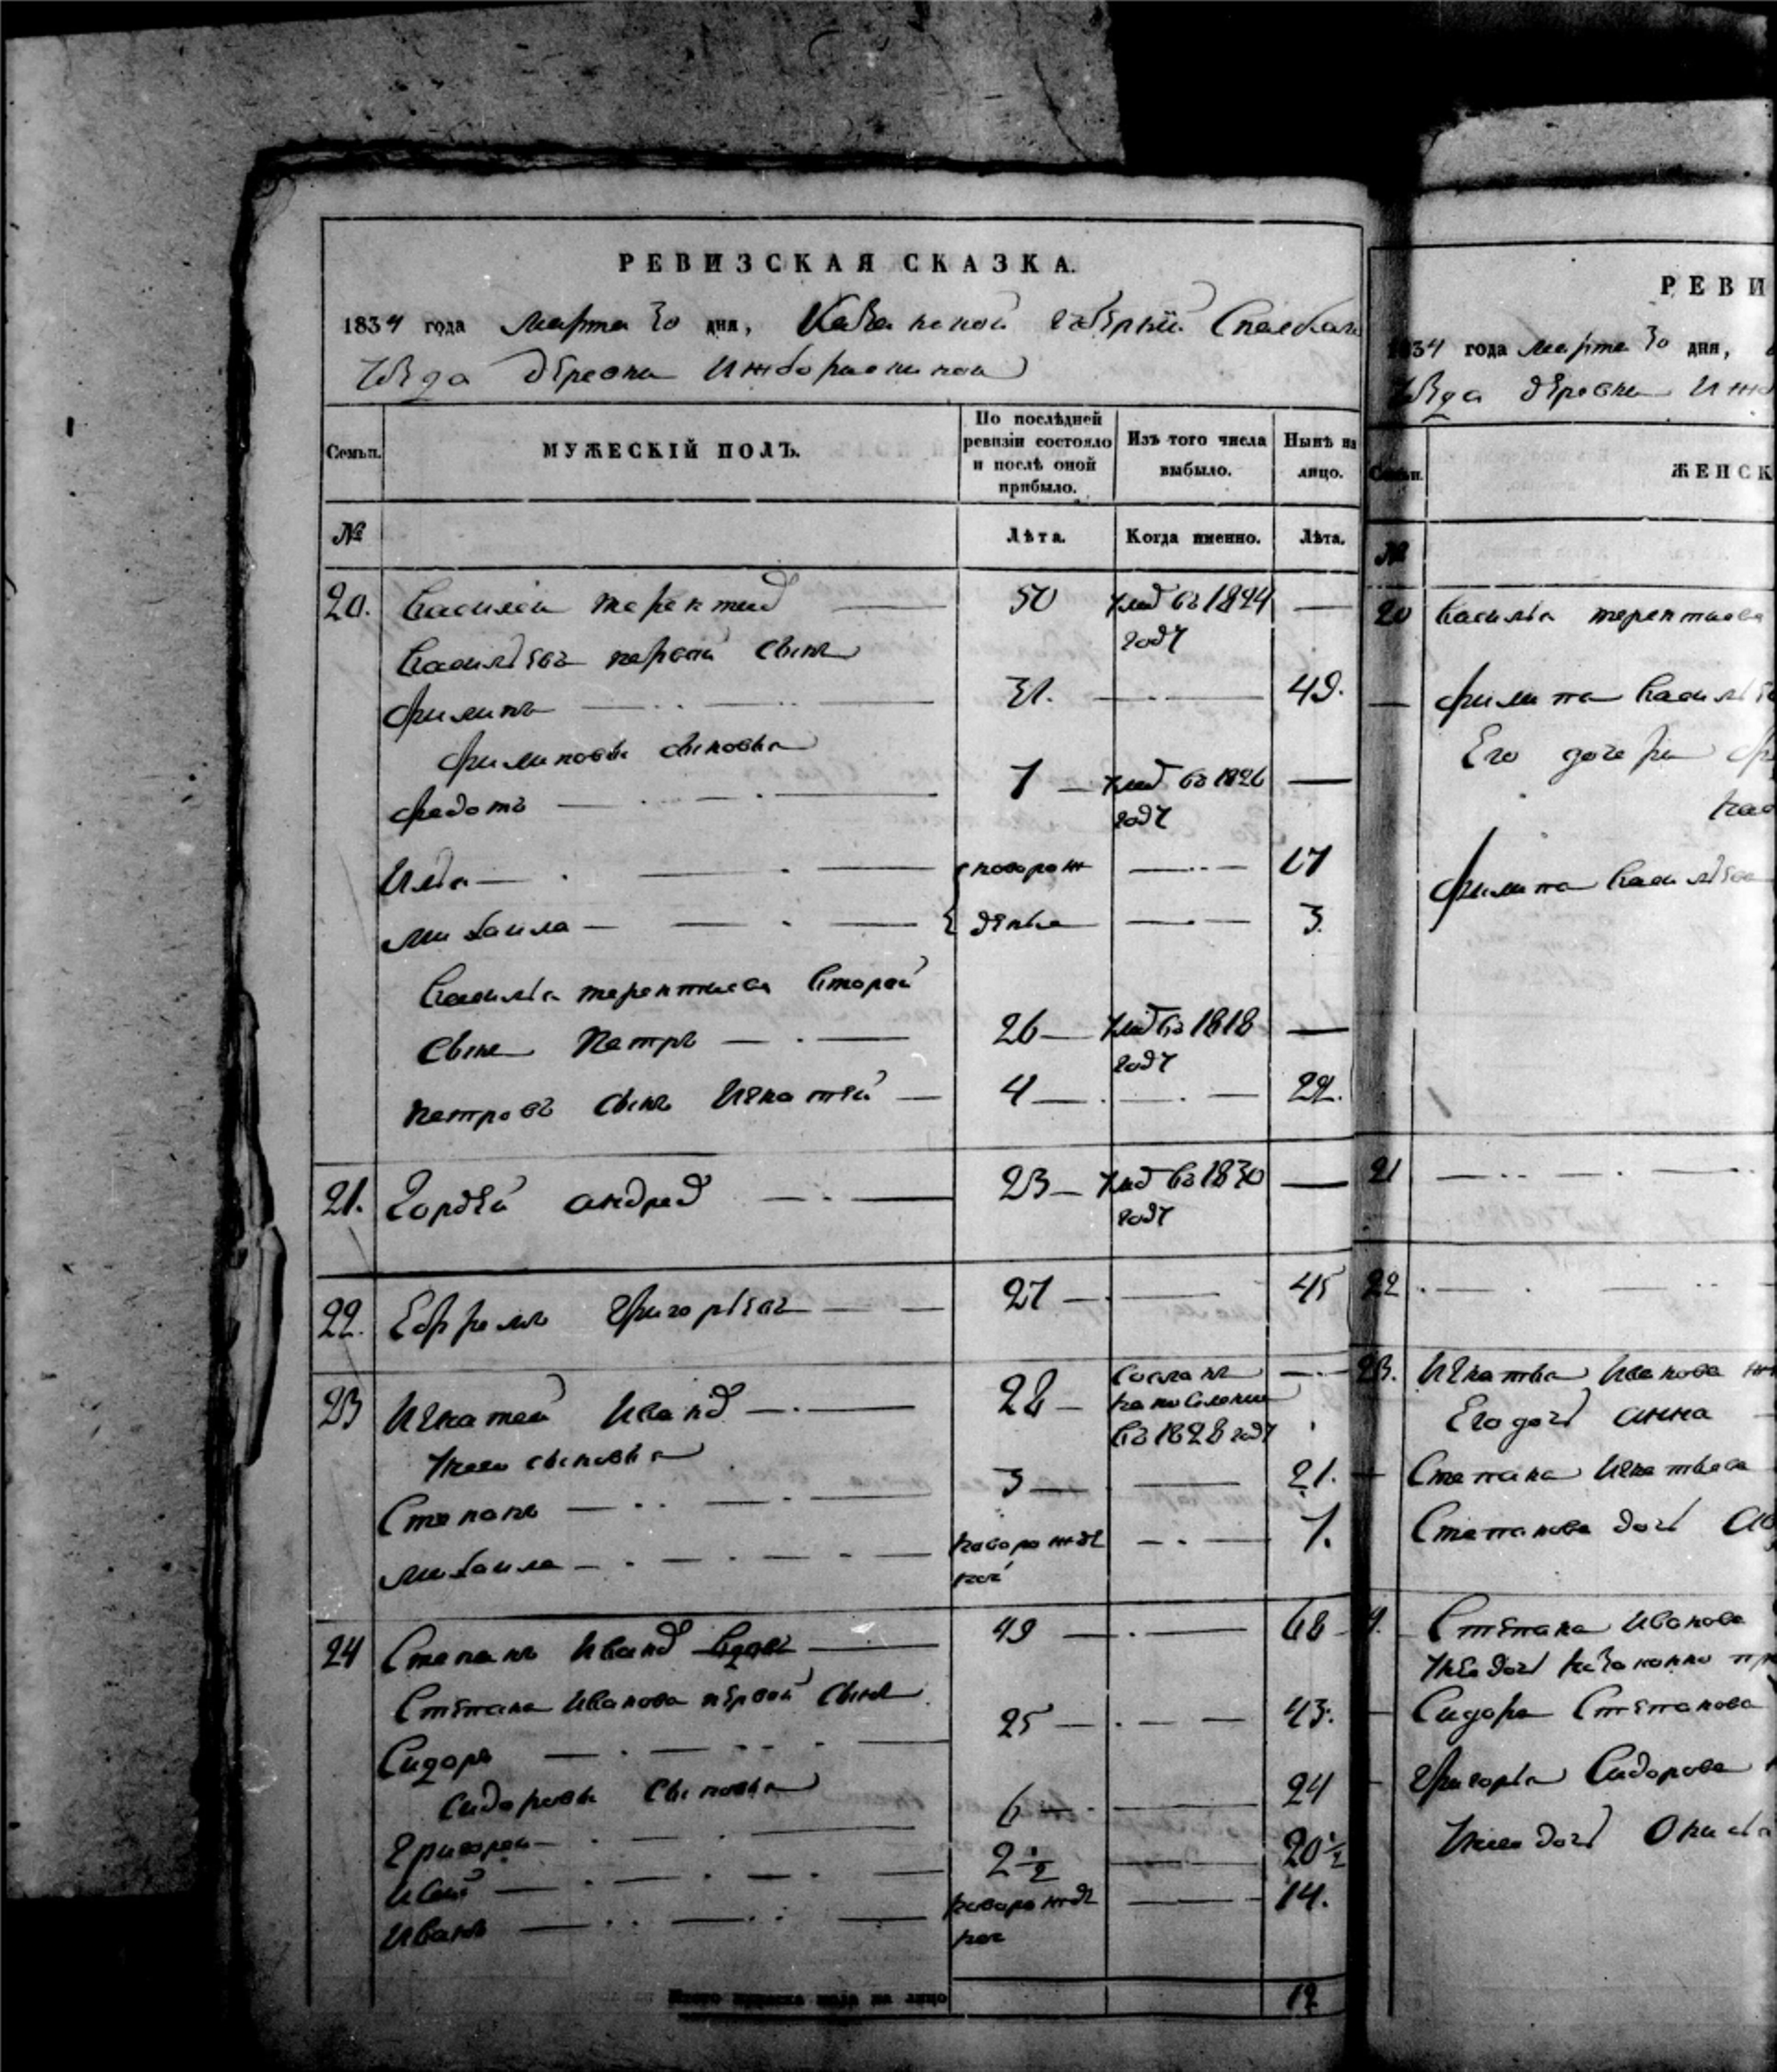 РЕВИЗСКАЯ СКАЗКА.
1834 года Марта 30 дня, Казанской губернiи Спасскаго
уезда деревни
Семьи.
МУЖЕСКІЙ ПОЛЪ.
По послѣдней ревизіи состояло и послѣ оной прибыло.
Изъ того числа выбыло.
Нынѣ на лицо.
№
Лѣта.
Когда именно.
Лѣта.
20. Василей терентьев 50 умер въ 1824 году
Васильевъ первой сынъ
Филипъ 31. 49.
Филиповы сыновья
Федотъ 7 умер въ 1826 году
Илья новорож 17
Михайла денные 3.
Василья терентьева второй
сынъ Петръ 26 умер въ 1818 году
Петровъ сынъ Игнатей 4 22.
21. Гордей андреев 23 умер въ 1830 году
22. Ефремъ Григорьевъ 27 45
23 Игнатей Иванов 28 сосланъ на поселение въ 1828 году
У него сыновья
Степанъ 3 21.
Михайла новорожден ной 7.
24 Степанъ Иванов 49 68
Степана Иванова первой сынъ
Сидоръ 25 43.
Сидоровы сыновья
Григорей 6 24
2 1/2 20 1/2
Иванъ новорожден ной 14.
Итого мужеска пола на лицо 12
РЕВИ
1834 года марта 30 дня,
уезда деревни
Семьи.
ЖЕНСК
№
20 Василья терентьева
Филипа Василье
Его дочери
Филипа Васильева
21
22
23. Игнатья Иванова
Его дочь анна
Степана Игнатьева
Степанова дочь
Степана Иванова
Сидора Степанова
Григорья Сидорова
У него дочь